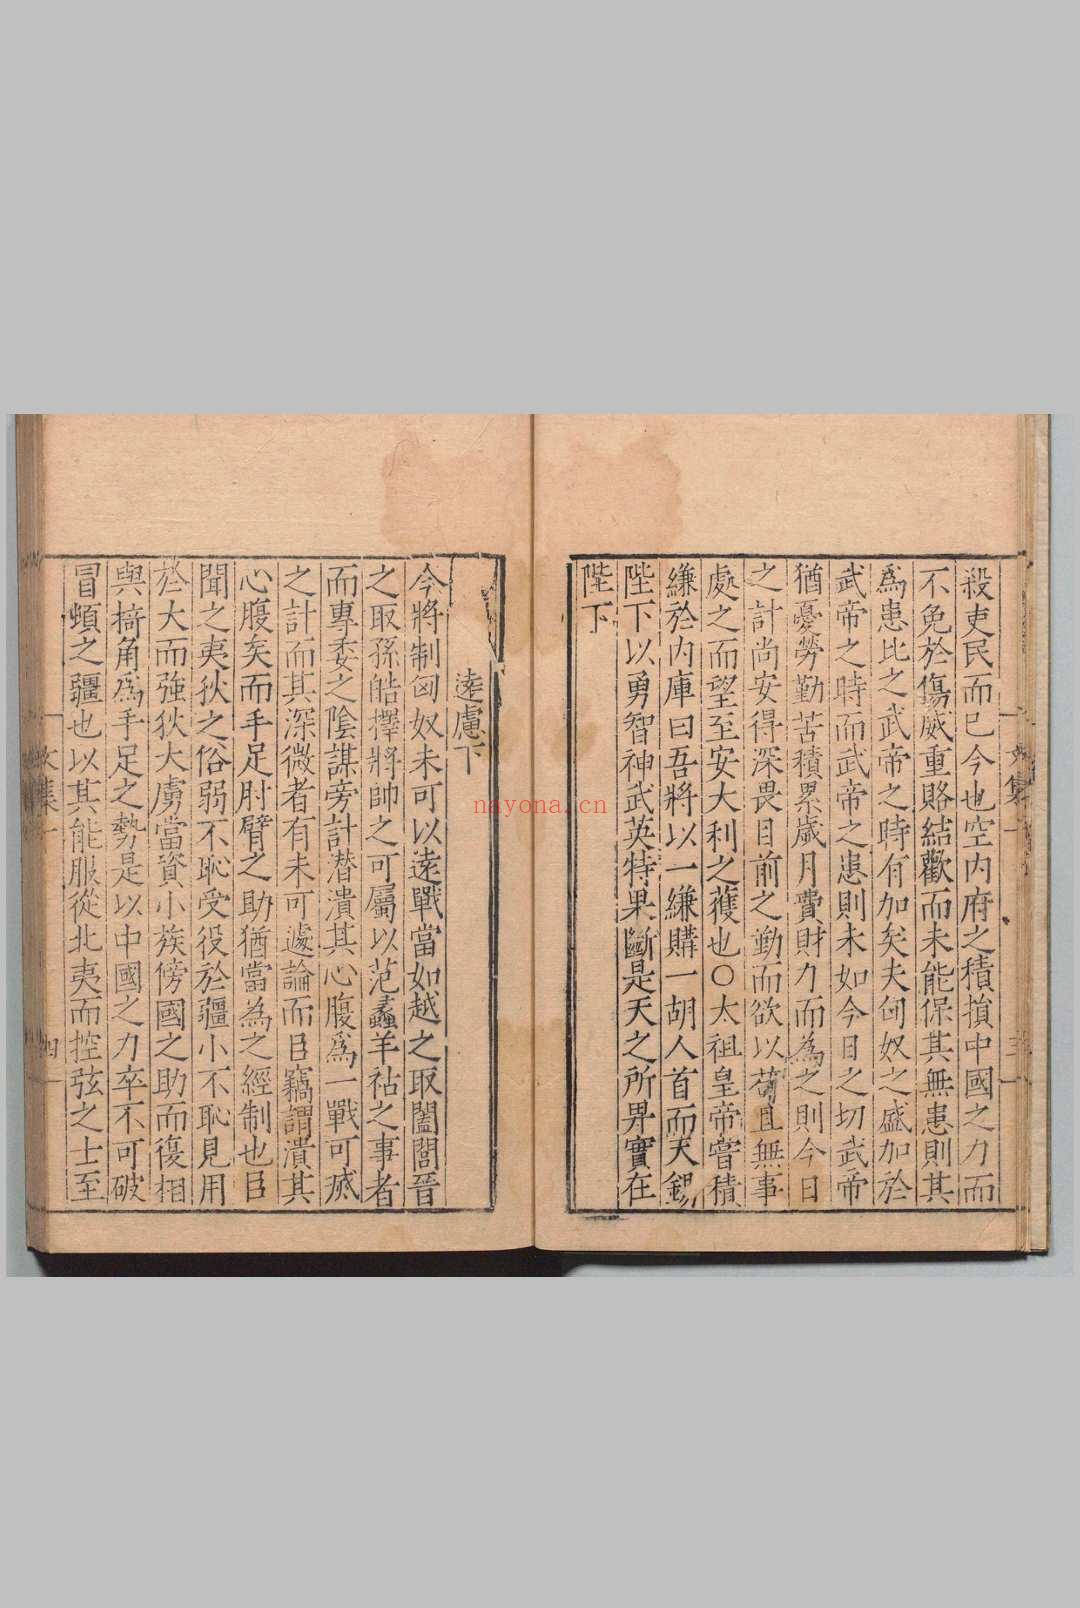 殺吏民而已今也空内府之積損中國之力而
不免於傷威重賂結歡而未能保其無患則其
爲患比之武帝之時有加矣夫匈奴之盛加於
武帝之時而武帝之患則未如今日之切武帝
猶憂勞勤苦積累歲月費財力而為之則今日
之計尚安得深畏目前之勤而欲以苟且無事
處之而望至安大利之獲也○太祖皇帝嘗積
縑於内庫曰吾將以一縑購一胡人首而天錫
陛下以勇智神武英特果斷是天之所畀實在
陛下
遠慮下
今將制匈奴未可以遠戰當如越之取闔閭晉
之取孫皓擇將帥之可屬以范蠡羊祜之事者
而專委之陰謀旁計潜潰其心腹爲一戰可殄
之計而其深微者有未可遽論而臣竊謂潰其
心腹矣而手足肘臂之助猶當為之經制也臣
聞之夷狄之俗弱不恥受役於疆小不恥見用
於大而強狄大虜當資小族傍國之助而復相
與掎角爲手足之勢是以中國之力卒不可破
冒頓之疆也以其能服從北夷而控弦之士至
文集一
四
文集一
三
nayona.cn